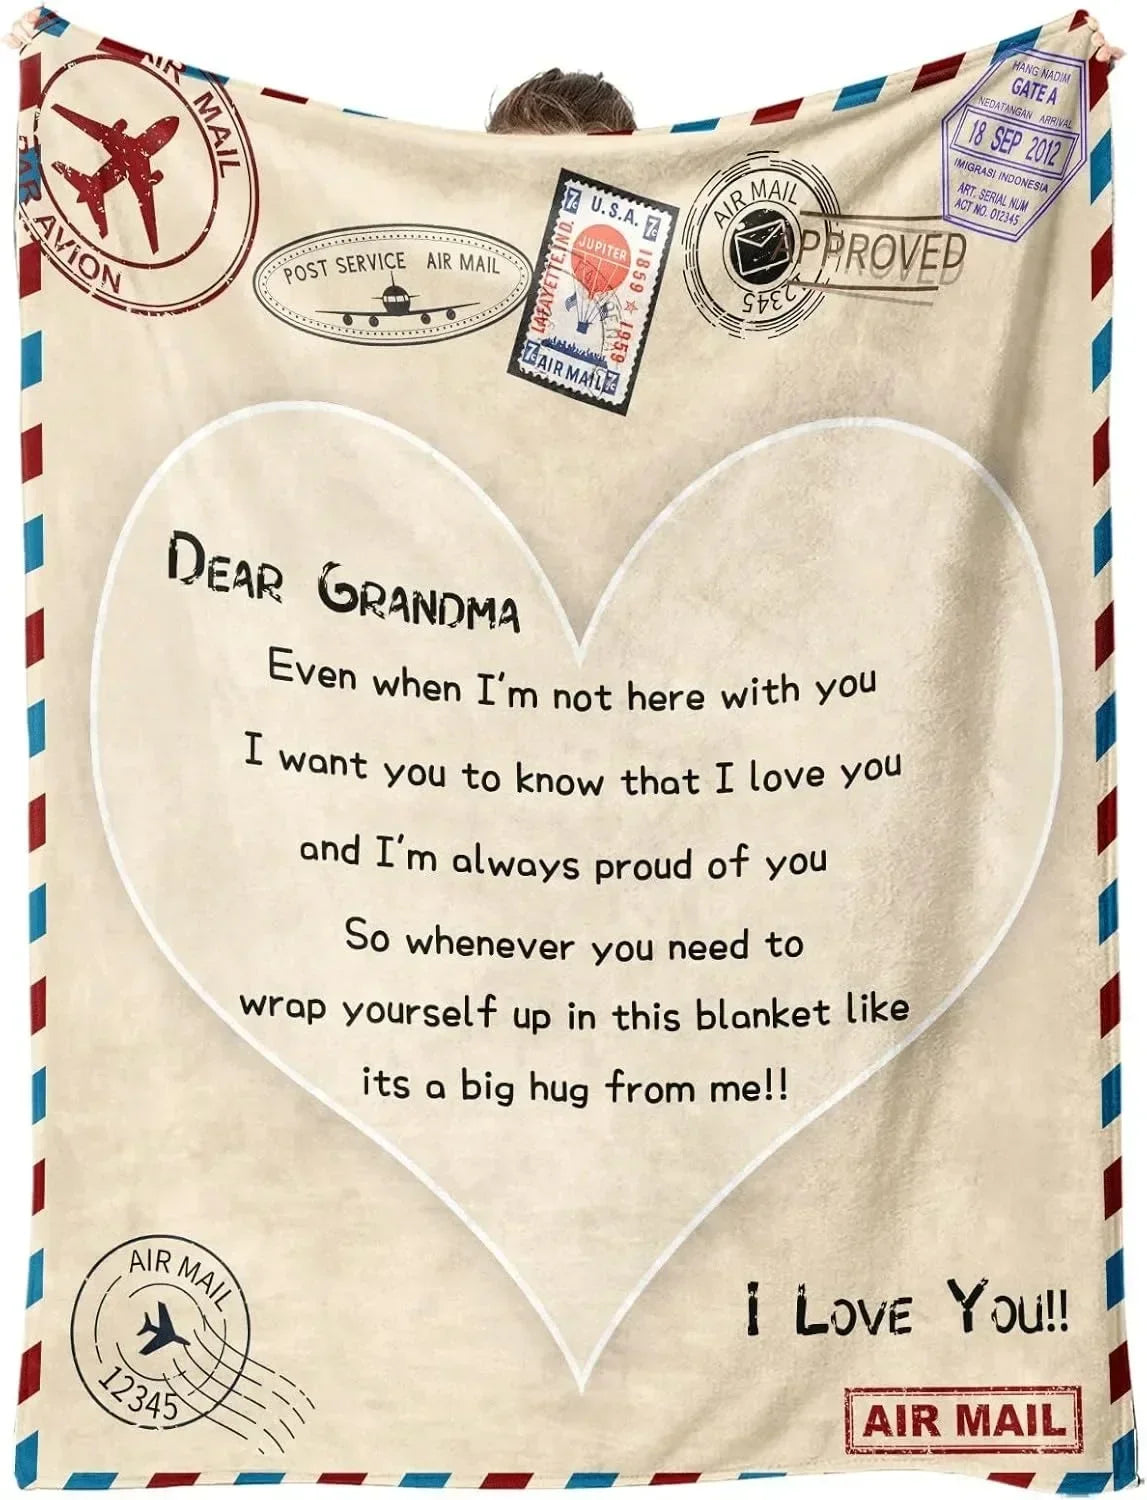 AIR MAIL
PAR AVION
POST SERVICE AIR MAIL
7c U.S.A. 7c
JUPITER
LAFAYETTE, IND.
1859 ★ 1959
7c AIR MAIL 7c
AIR MAIL
12345
APPROVED
HANG NADIM
GATE A
NEDATANGAN ARRIVAL
18 SEP 2012
IMIGRASI INDONESIA
ART. SERIAL NUM
ACT NO. 012345
DEAR GRANDMA
Even when I'm not here with you
I want you to know that I love you
and I'm always proud of you
So whenever you need to
wrap yourself up in this blanket like
its a big hug from me!!
AIR MAIL
12345
I LOVE YOU!!
AIR MAIL